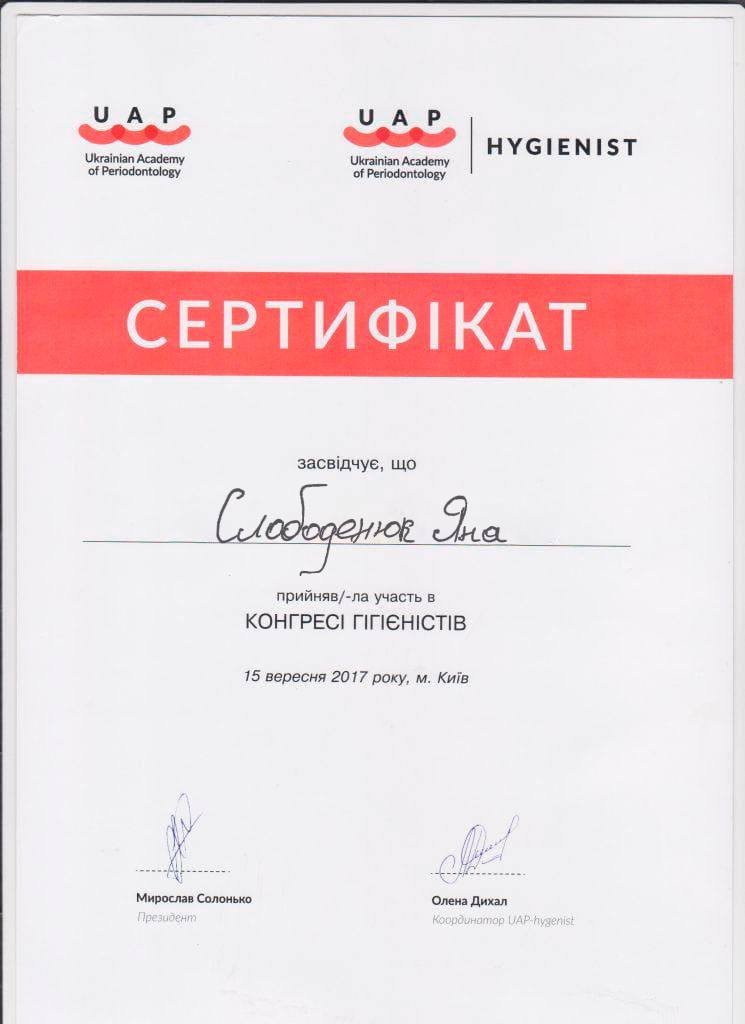 UAP
Ukrainian Academy
of Periodontology
UAP
Ukrainian Academy
of Periodontology
HYGIENIST
СЕРТИФІКАТ
засвідчує, що
Слободенюк Яна
прийняв/-ла участь в
КОНГРЕСІ ГІГІЄНІСТІВ
15 вересня 2017 року, м. Київ
Мирослав Солонько
Президент
Олена Дихал
Координатор UAP-hygenist